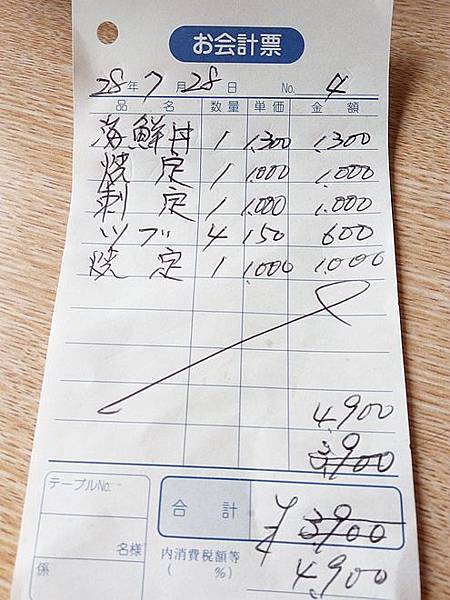 お会計票
28年7月28日 No. 4
品名 数量 単価 金額
海鮮丼 1 1,300 1,300
焼定 1 1,000 1,000
刺定 1 1,000 1,000
ツブ 4 150 600
焼定 1 1,000 1,000
4,900
3,900
テーブルNo.
名様
係
合計 ¥3,900
内消費税額等
( %)
4,900